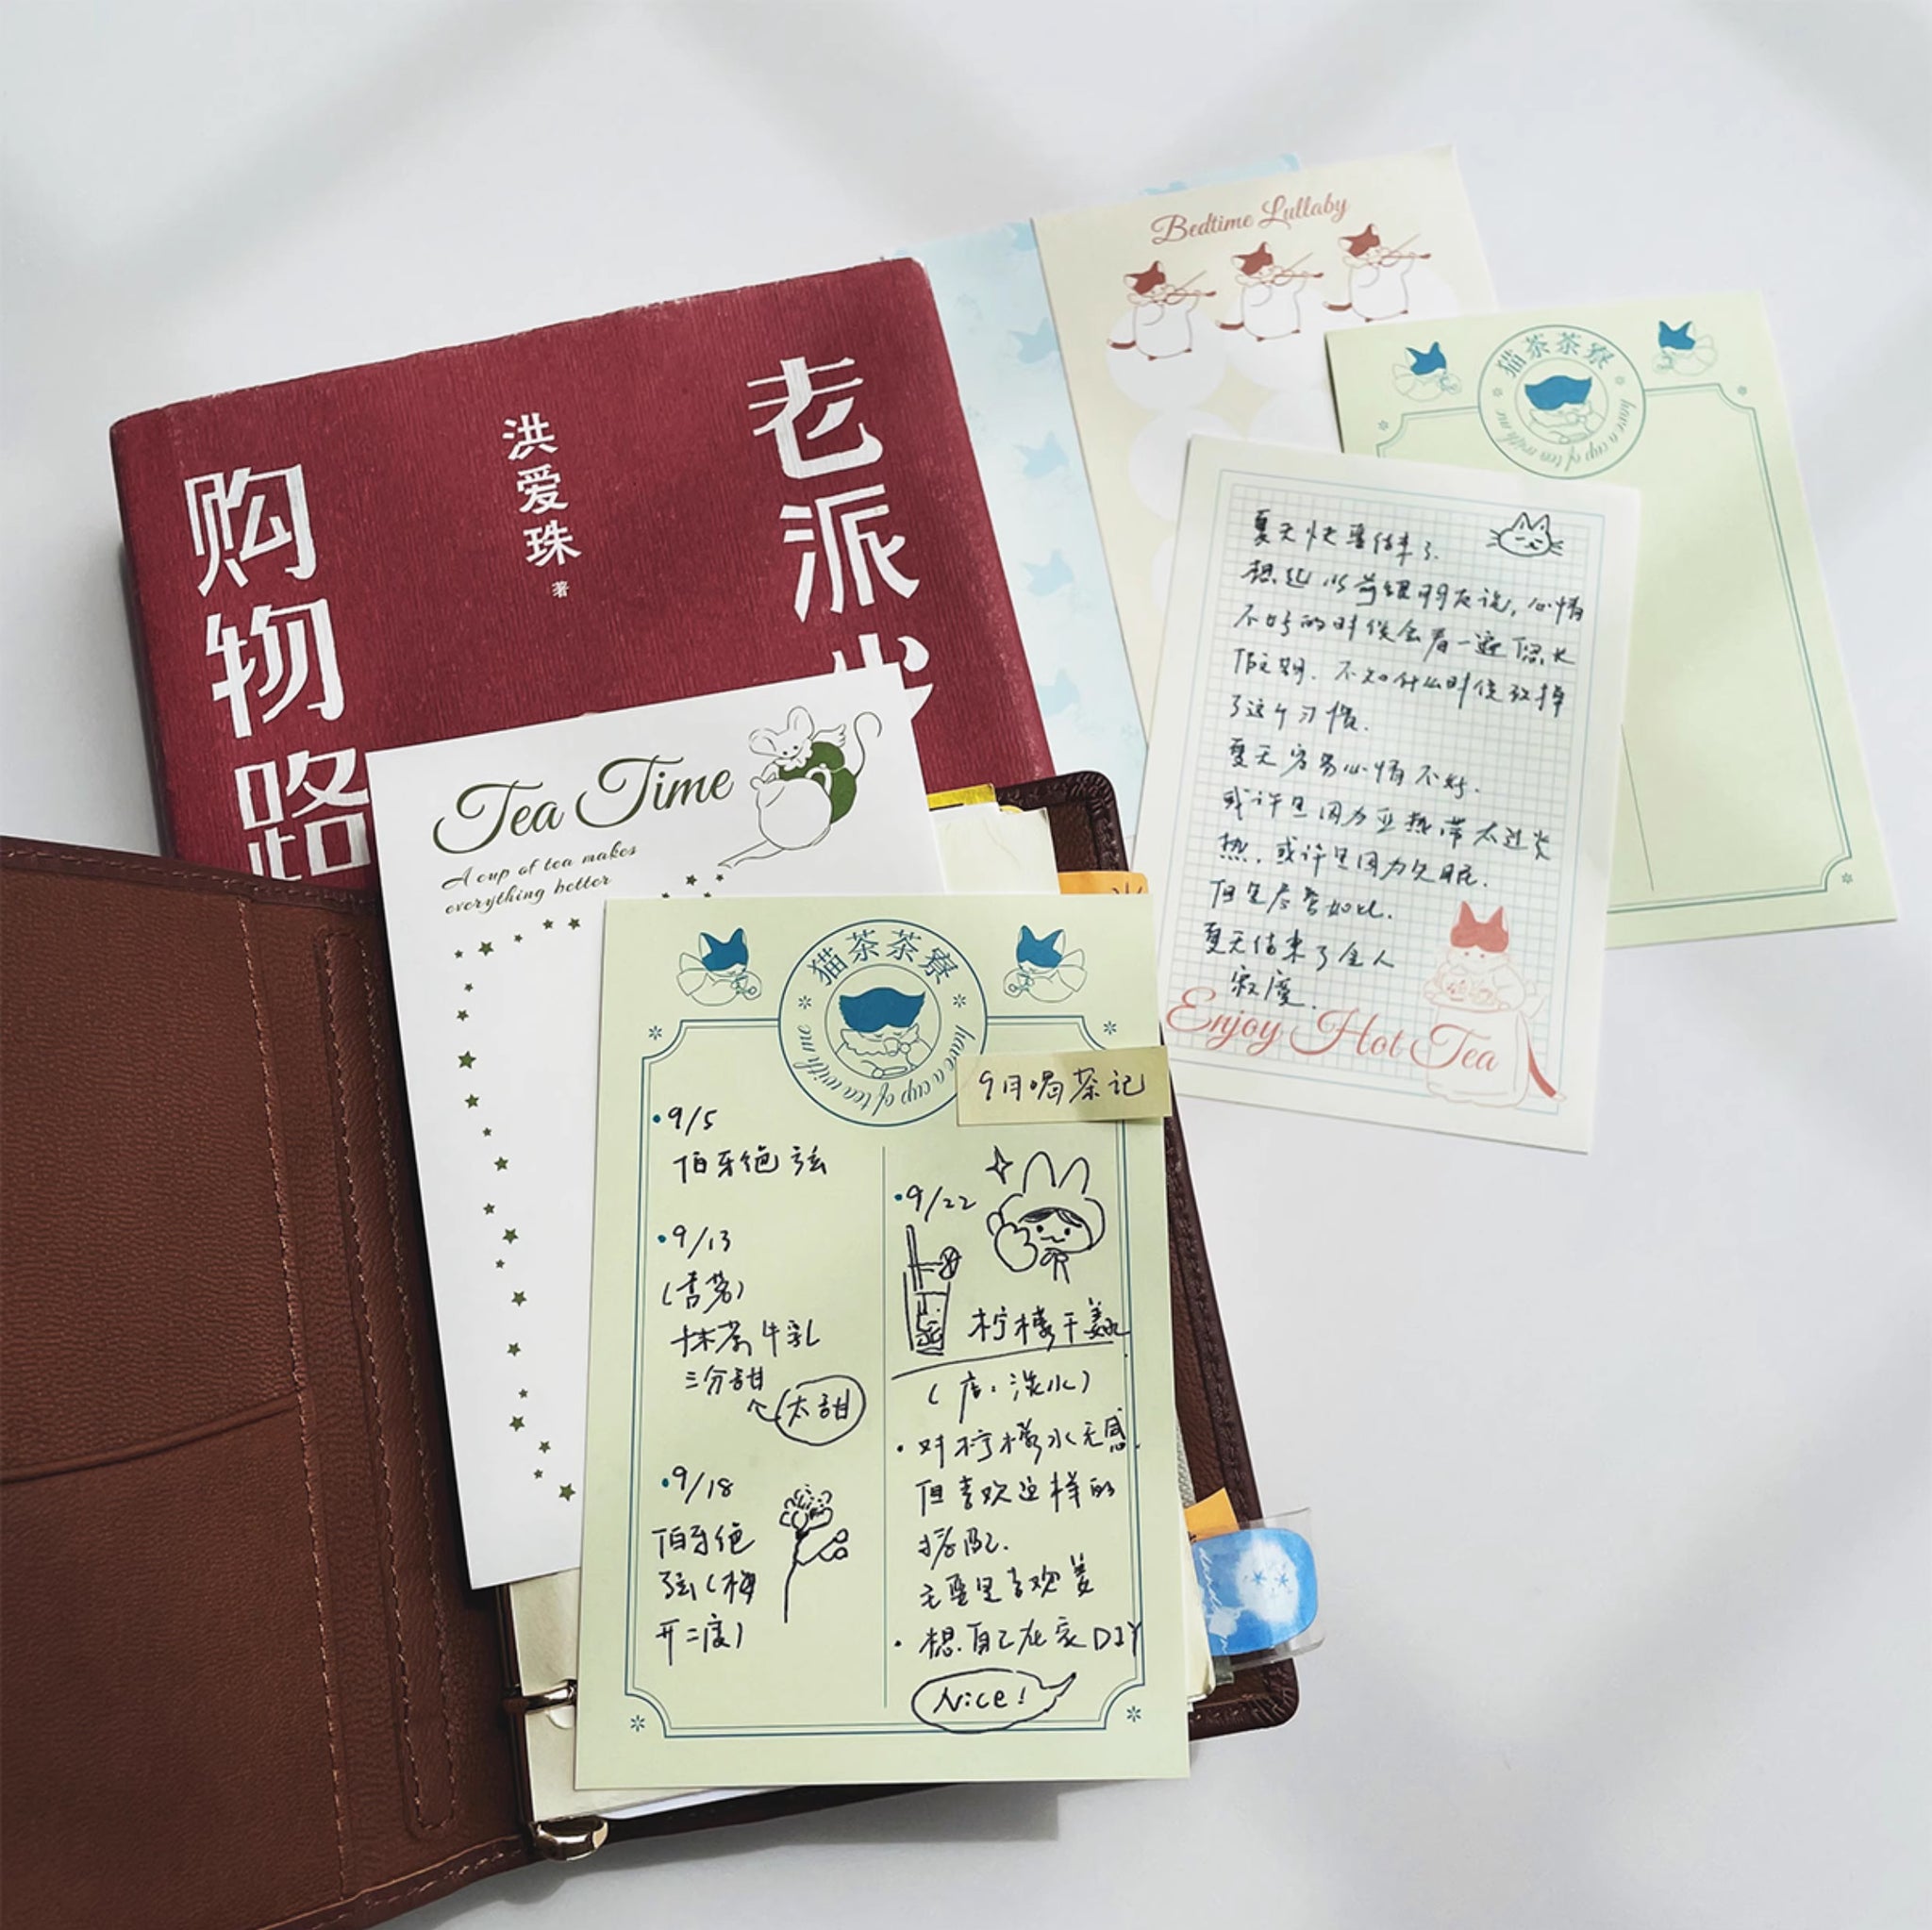 老派少
洪爱珠
著
购物路
Bedtime Lullaby
猫茶茶寮
have a cup of tea with me
夏天快要结束了.
想起以前跟朋友说,心情
不好的时候会看一遍悠长
假期.不知什么时候改掉
了这个习惯.
夏天容易心情不好.
或许是因为亚热带太过炎
热,或许是因为久眠.
但是尽管如此.
夏天结束了令人
寂寞.
Enjoy Hot Tea
Tea Time
A cup of tea makes
everything better
猫茶茶寮
have a cup of tea with me
9月喝茶记
•9/5
伯牙绝弦
•9/13
(古茗)
抹茶牛乳
三分甜
太甜
•9/18
伯牙绝
弦(梅
开二度)
•9/22
柠檬干姜水
(店:淡水)
•对柠檬水无感.
但喜欢这样的
搭配.
主要是喜欢姜
•想自己在家DIY
Nice!